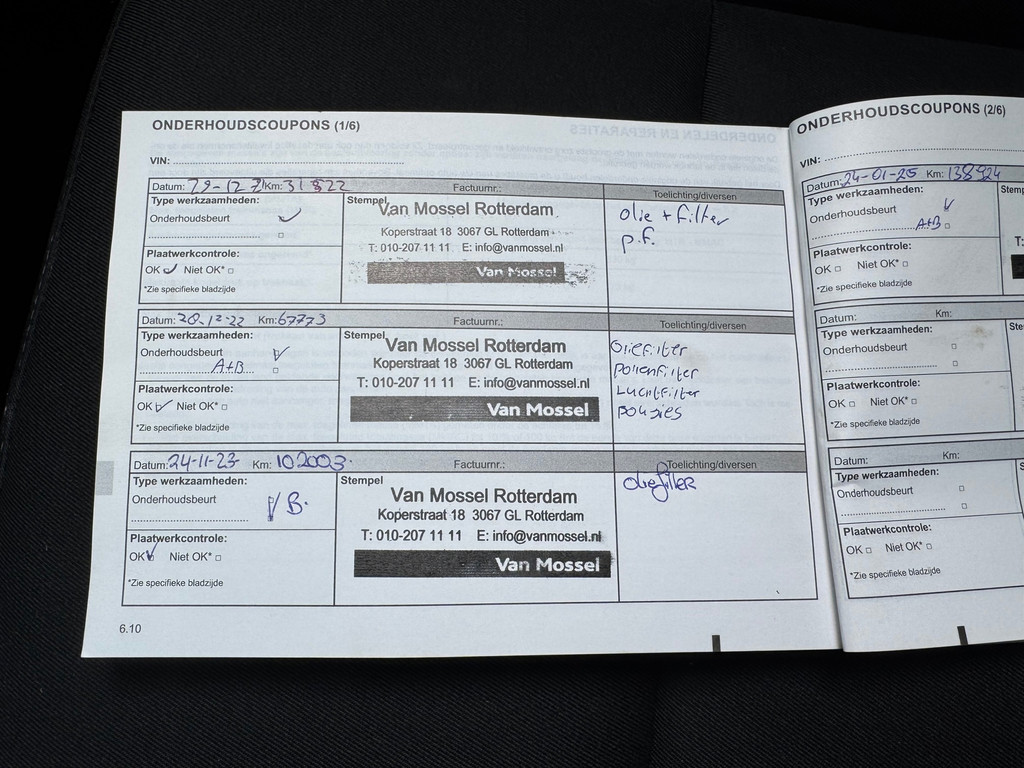 ONDERHOUDSCOUPONS (1/6)
VIN:
Datum: 29-12-21 Km: 31 822 Factuurnr.: Toelichting/diversen
Type werkzaamheden:
Onderhoudsbeurt
Plaatwerkcontrole:
OK Niet OK*
*Zie specifieke bladzijde
Stempel
Van Mossel Rotterdam
Koperstraat 18 3067 GL Rotterdam
T: 010-207 11 11 E: info@vanmossel.nl
Van Mossel
Olie + filter
p.f.
Datum: 20-12-22 Km: 67773 Factuurnr.: Toelichting/diversen
Type werkzaamheden:
Onderhoudsbeurt
A+B
Plaatwerkcontrole:
OK Niet OK*
*Zie specifieke bladzijde
Stempel
Van Mossel Rotterdam
Koperstraat 18 3067 GL Rotterdam
T: 010-207 11 11 E: info@vanmossel.nl
Van Mossel
Oliefilter
pollenfilter
Luchtfilter
bougies
Datum: 24-11-23 Km: 102003 Factuurnr.: Toelichting/diversen
Type werkzaamheden:
Onderhoudsbeurt
B.
Plaatwerkcontrole:
OK Niet OK*
*Zie specifieke bladzijde
Stempel
Van Mossel Rotterdam
Koperstraat 18 3067 GL Rotterdam
T: 010-207 11 11 E: info@vanmossel.nl
Van Mossel
oliefilter
6.10
ONDERHOUDSCOUPONS (2/6)
VIN:
Datum: 24-01-25 Km: 138924
Type werkzaamheden:
Onderhoudsbeurt
A+B
Plaatwerkcontrole:
OK Niet OK*
*Zie specifieke bladzijde
Datum: Km:
Type werkzaamheden:
Onderhoudsbeurt
Plaatwerkcontrole:
OK Niet OK*
*Zie specifieke bladzijde
Datum: Km:
Type werkzaamheden:
Onderhoudsbeurt
Plaatwerkcontrole:
OK Niet OK*
*Zie specifieke bladzijde